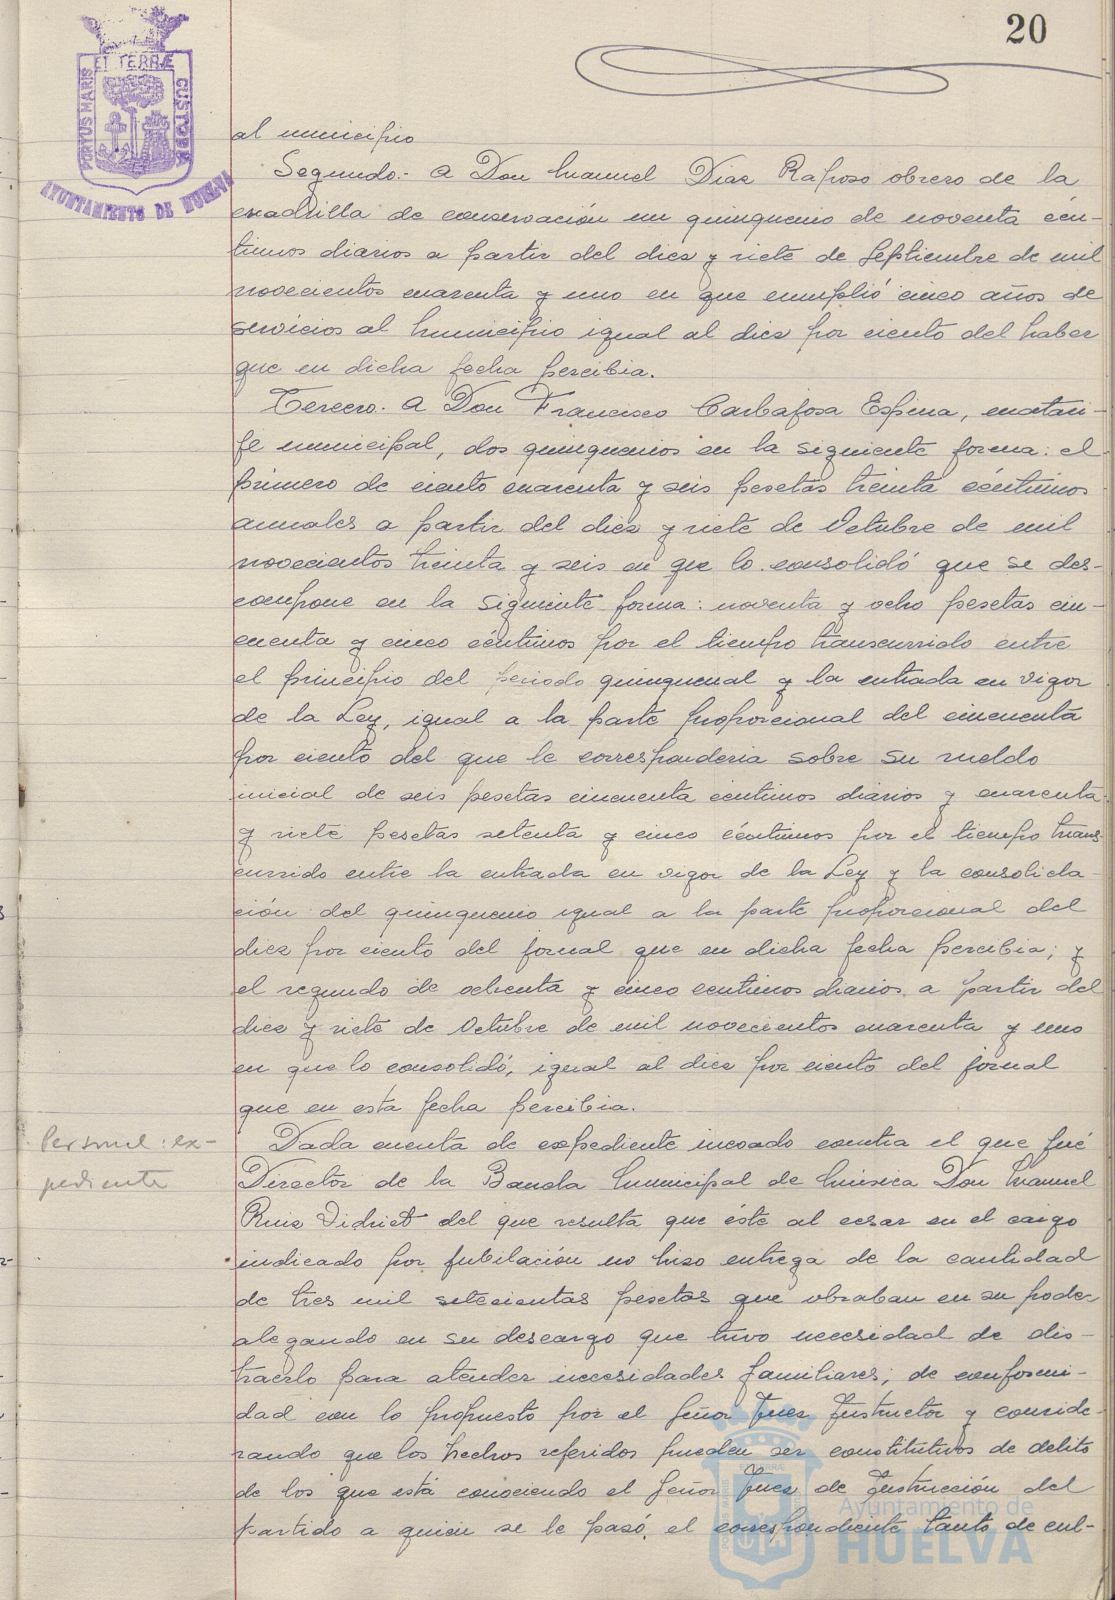 20
PORTUS MARIS ET TERRÆ CUSTODIA
AYUNTAMIENTO DE HUELVA
al municipio
Segundo.- A Don Manuel Diaz Raposo obrero de la
cuadrilla de conservación un quinquenio de noventa cén-
timos diarios a partir del diez y siete de Septiembre de mil
novecientos cuarenta y uno en que cumplió cinco años de
servicios al Municipio igual al diez por ciento del haber
que en dicha fecha percibia.
Tercero. A Don Francisco Carbajosa Espina, matari-
fe municipal, dos quinquenios en la siguiente forma: el
primero de ciento cuarenta y seis pesetas treinta céntimos
anuales a partir del diez y siete de Octubre de mil
novecientos treinta y seis en que lo consolidó que se des-
compone en la siguiente forma: noventa y ocho pesetas cin-
cuenta y cinco céntimos por el tiempo transcurrido entre
el principio del periodo quinquenal y la entrada en vigor
de la Ley, igual a la parte proporcional del cincuenta
por ciento del que le corresponderia sobre su sueldo
inicial de seis pesetas cincuenta centimos diarios y cuarenta
y siete pesetas setenta y cinco céntimos por el tiempo trans-
currido entre la entrada en vigor de la Ley y la consolida-
ción del quinquenio igual a la parte proporcional del
diez por ciento del jornal que en dicha fecha percibia; y
el segundo de ochenta y cinco centimos diarios a partir del
diez y siete de Octubre de mil novecientos cuarenta y uno
en que lo consolidó, igual al diez por ciento del jornal
que en esta fecha percibia.
Personal: ex-
pediente
Dada cuenta de expediente incoado contra el que fué
Director de la Banda Municipal de Música Don Manuel
Ruiz Vidriet del que resulta que éste al cesar en el cargo
indicado por jubilación no hizo entrega de la cantidad
de tres mil setecientas pesetas que obraban en su poder
alegando en su descargo que tuvo necesidad de dis-
traerlo para atender necesidades familiares; de conformi-
dad con lo propuesto por el Señor Juez Instructor y conside-
rando que los hechos referidos pueden ser constitutivos de delito
de los que está conociendo el Señor Juez de Instrucción del
partido a quien se le pasó el correspondiente tanto de cul-
Ayuntamiento de
HUELVA